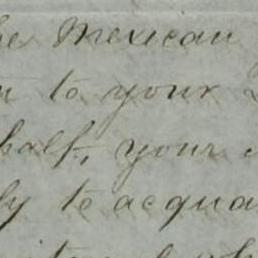 he Mexican
to your
half, your
ly to acqua